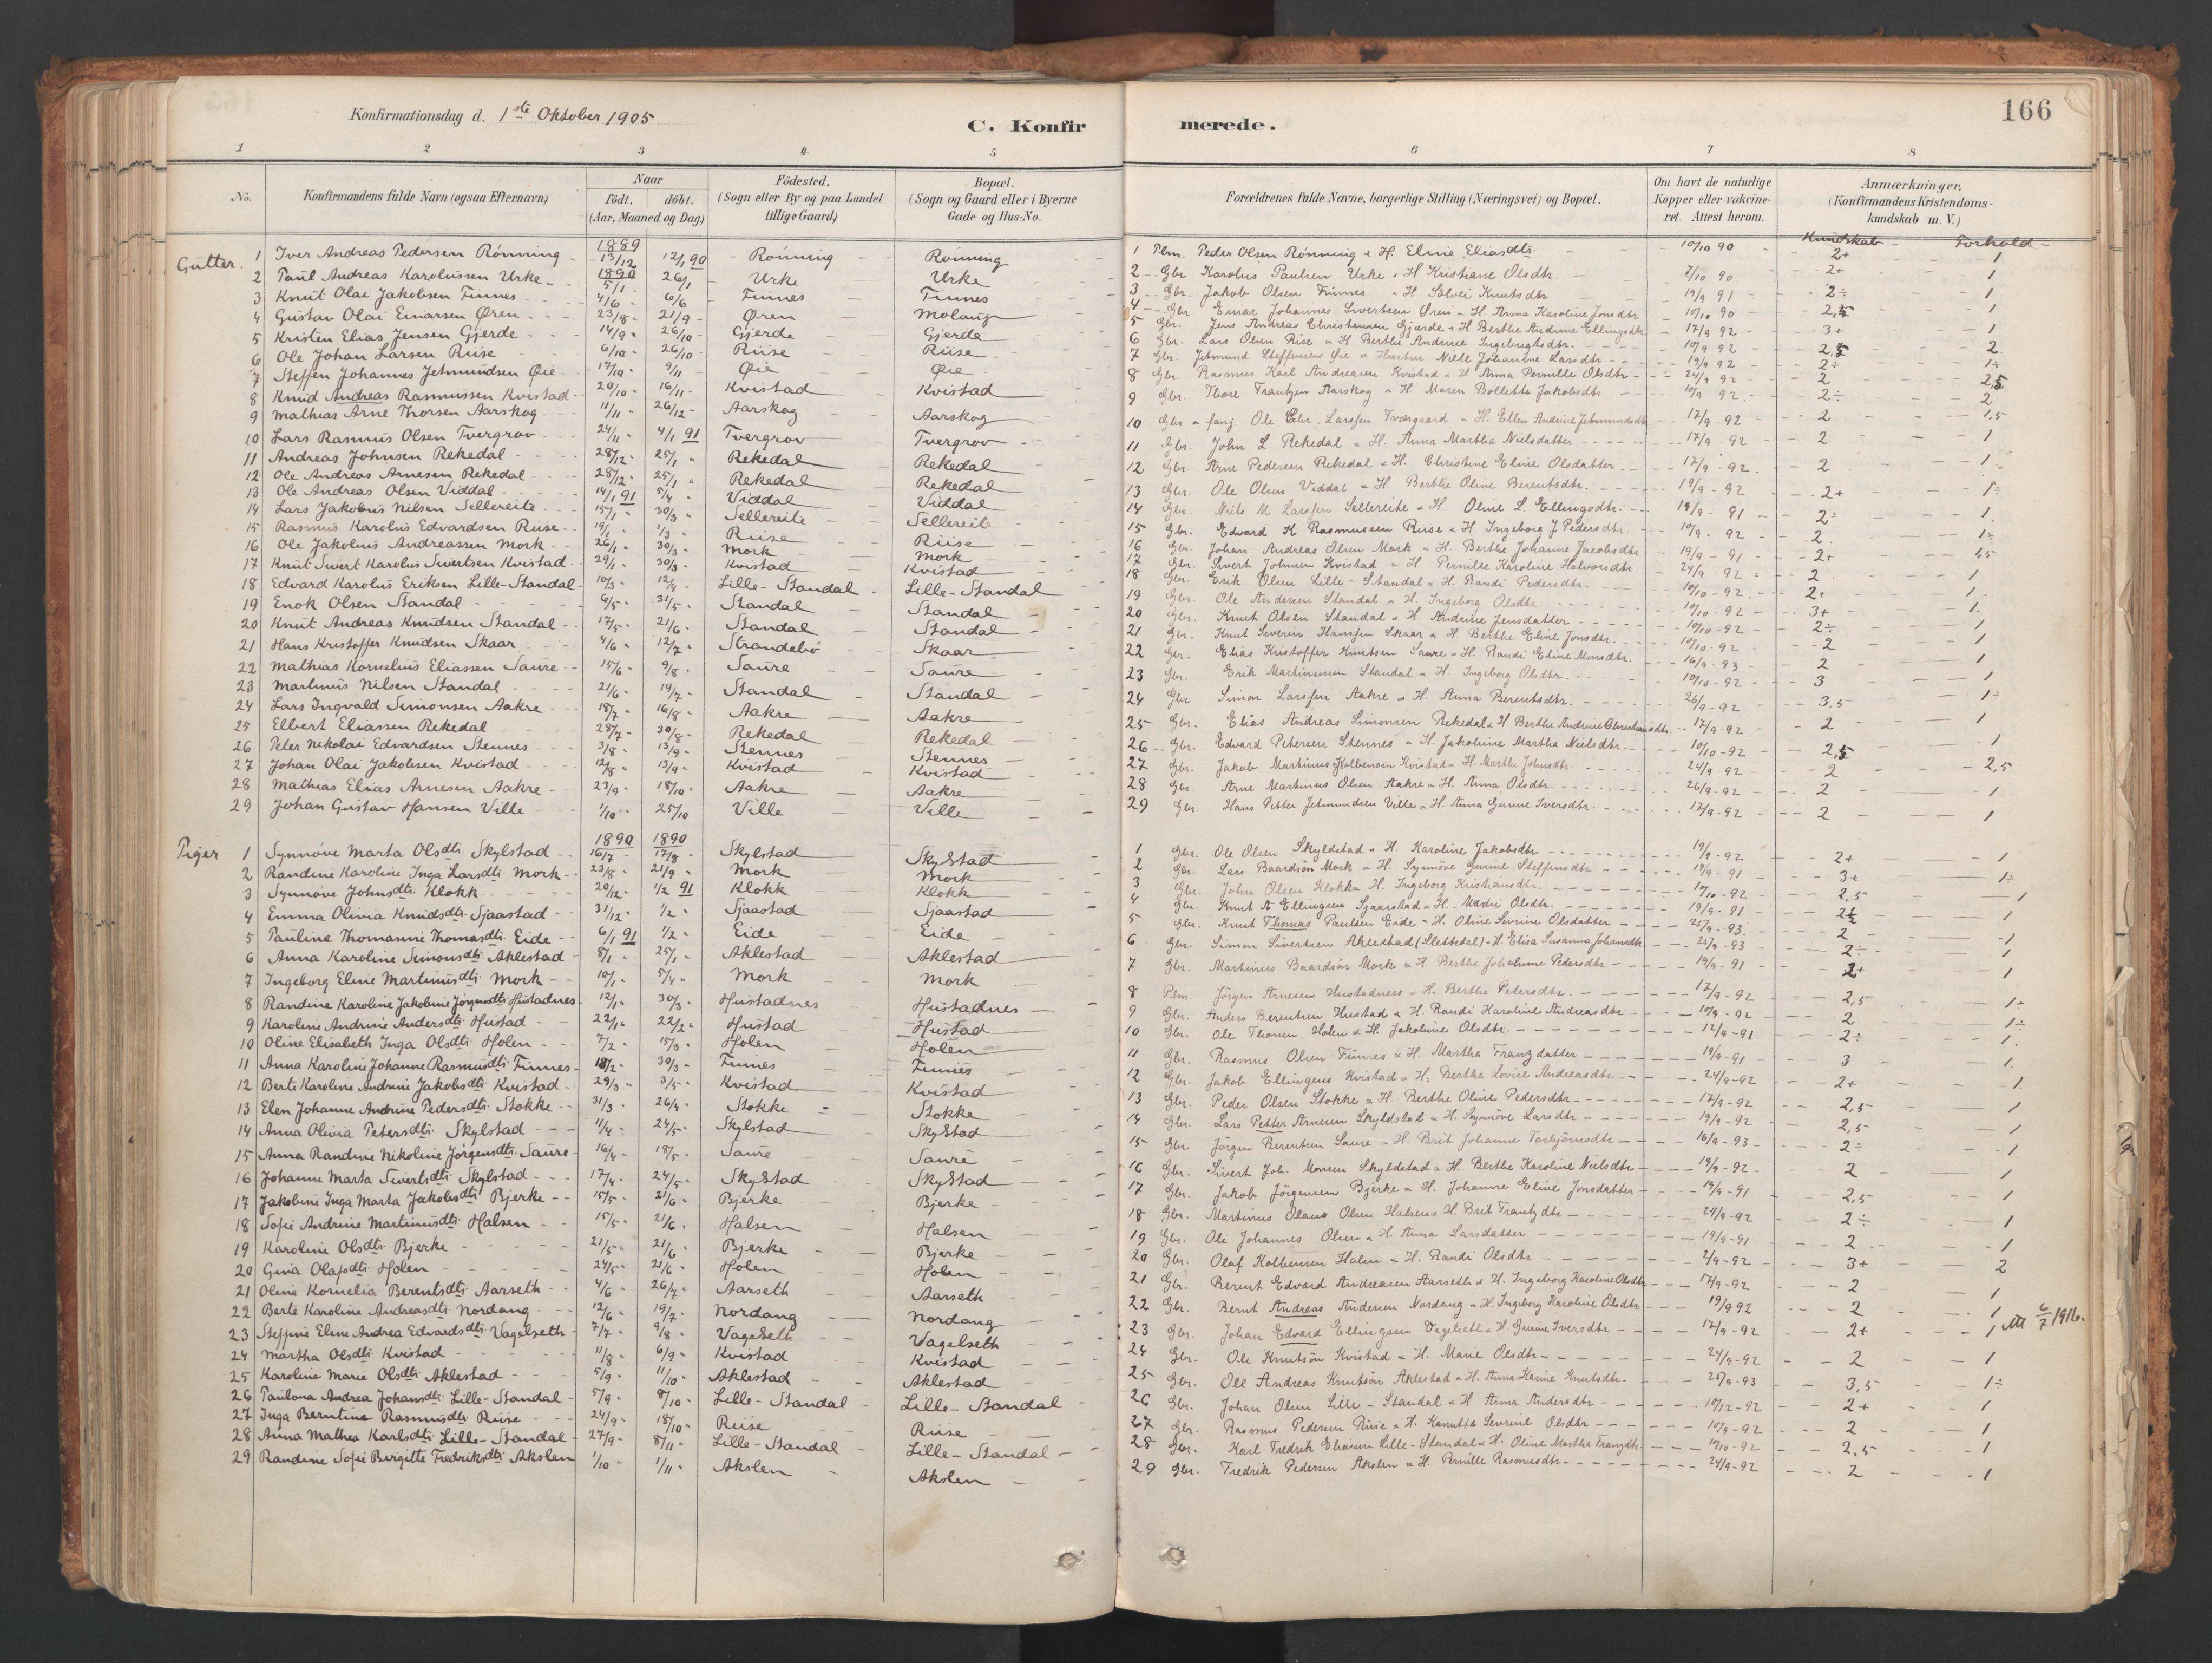 Konfirmationsdag d. 1ste Oktober 1905
C. Konfirmerede.
166
1 2 3 4 5 6 7 8
No. Konfirmandens fulde Navn (ogsaa Efternavn) Naar født. døbt. (Aar, Maaned og Dag) Fødested. (Sogn eller By og paa Landet tillige Gaard) Bopæl. (Sogn og Gaard eller i Byerne Gade og Hus-No. Forældrenes fulde Navne, borgerlige Stilling (Næringsvei) og Bopæl. Om havt de naturlige Kopper eller vakcineret. Attest herom. Anmærkninger. (Konfirmandens Kristendomskundskab m. V.)
Kundskab Forhold
Gutter. 1 Iver Andreas Pedersen Rönning 1889 13/12 12/1 90 Rönning Rönning 1 Plm. Peder Olsen Rönning & H. Eline Eliasdtr 10/10 90 2+ 1
2 Paul Andreas Karolussen Urke 1890 5/1 26/1 Urke Urke 2 Gbr Karolus Paulsen Urke & H Kristiane Olsdtr 7/10 90 2+ 1
3 Knut Olai Jakobsen Finnes 4/6 6/6 Finnes Finnes 3 Gbr. Jakob Olsen Finnes & H Solvei Knutsdtr 19/9 91 2÷ 1
4 Gustav Olai Einarsen Øren 23/8 21/9 Øren Molaup 4 Gbr Einar Johannes Sivertsen Øren & H. Anna Karoline Jonsdtr 10/10 90 2,5 1
5 Kristen Elias Jensen Gjerde 14/9 26/10 Gjerde Gjerde 5 Gbr. Jens Andreas Christensen Gjærde & H Berthe Andrine Ellingsdtr 17/9 92 3+ 1
6 Ole Johan Larsen Riise 6/10 26/10 Riise Riise 6 Gbr. Lars Olsen Rise & H Berthe Andrine Ingebrigtsdtr. 10/9 92 2,5 2
7 Steffen Johannes Jetmundsen Øie 17/10 9/11 Øie Øie 7 Gbr. Jetmund Steffensen Øie & Hustru Nille Johanne Larsdtr 19/9 92 2÷ 1÷
8 Knud Andreas Rasmussen Kvistad 20/10 16/11 Kvistad Kvistad 8 Gbr. Rasmus Karl Andreasen Kvistad & H Anna Pernille Olsdtr 24/9 92 2 2,5
9 Mathias Arne Thorsen Aarskog 11/11 26/12 Aarskog Aarskog 9 Gbr. Thore Frantzen Aarskog & H Maren Bollette Jakobsdtr 10/9 92 2÷ 2
10 Lars Rasmus Olsen Tvergrov 24/11 4/1 91 Tvergrov Tvergrov 10 Gbr & fanj. Ole Chr. Larssen Tværgaard & H. Ellen Andrine Jetmundsdtr 17/9 92 2 1,5
11 Andreas Johnsen Rekedal 28/12 25/1 Rekedal Rekedal 11 Gbr. John L Rekedal & H. Anna Martha Nielsdatter 17/9 92 2 1
12 Ole Andreas Arnesen Rekedal 28/12 25/1 Rekedal Rekedal 12 Gbr. Arne Pedersen Rekedal & H. Christine Eline Olsdatter 17/9 92 2 1
13 Ole Andreas Olsen Viddal 14/1 91 5/4 Viddal Viddal 13 Gbr. Ole Olsen Viddal & H Berthe Oline Berentsdtr. 19/9 92 2+ 1÷
14 Lars Jakobus Nilsen Sellereite 15/1 30/3 Sellereite Sellereite 14 Gbr. Nils M Larssen Sellereite & H. Oline L. Ellingsdtr. 19/9 91 2÷ 1
15 Rasmus Karolus Edvardsen Riise 19/1 1/3 Riise Riise 15 Gbr. Edvard K Rasmussen Riise & H. Ingeborg J Pedersdtr. 10/9 92 2 1÷
16 Ole Jakobus Andreassen Mork 26/1 30/3 Mork Mork 16 Gbr. Johan Andreas Olsen Mork & H. Berthe Johanne Jacobsdtr 19/9 91 2+ 1,5
17 Knut Sivert Karolus Sivertsen Kvistad 29/1 30/3 Kvistad Kvistad 17 Gbr. Sivert Johnsen Kvistad & H Pernille Karoline Halvorsdtr. 24/9 92 2 1
18 Edvard Karolus Eriksen Lille-Standal 10/3 12/4 Lille-Standal Lille-Standal 18 Gbr. Erik Olsen Lille-Standal & H. Randi Pedersdtr. 10/10 92 2+ 1
19 Enok Olsen Standal 6/5 31/5 Standal Standal 19 Gbr. Ole Andersen Standal & H. Ingeborg Olsdtr. 10/10 92 3+ 1
20 Knut Andreas Knudsen Standal 17/5 21/6 Standal Standal 20 Gbr. Knut Olsen Standal & H. Andrine Jensdatter 10/10 92 2÷ 1
21 Hans Kristoffer Knudsen Skaar 4/6 12/7 Strandebø Skaar 21 Gbr. Knut Severin Hanssen Skaar & H Berthe Eline Jonsdtr. 10/10 92 2 1
22 Mathias Kornelius Eliassen Saure 15/6 9/8 Saure Saure 22 Gbr. Elias Kristoffer Knutsen Saure & H. Randi Eline Monsdtr. 16/9 93 2 1
23 Martinus Nilsen Standal 21/6 19/7 Standal Standal 23 Gbr. Erik Martinussen Standal & H. Ingeborg Olsdtr. 10/10 92 3 1
24 Lars Ingvald Simonsen Aakre 18/7 16/8 Aakre Aakre 24 Gbr Simon Larssen Aakre & H. Anna Berentsdtr. 26/9 92 3,5 1÷
25 Elbert Eliassen Rekedal 28/7 30/8 Rekedal Rekedal 25 Gbr. Elias Andreas Simonsen Rekedal & H. Berthe Andrine 17/9 92 2 1
26 Peter Nikolai Edvardsen Stennes 3/8 13/9 Stennes Stennes 26 Gbr. Edvard Petersen Stennes & H. Jakobine Martha Nielsdtr. 10/10 92 2,5 1
27 Johan Olai Jakobsen Kvistad 12/8 13/9 Kvistad Kvistad 27 Gbr. Jakob Martinus Kolbensen Kvistad & H. Marthe Johnsdtr. 24/9 92 2 2,5
28 Mathias Elias Arnesen Aakre 23/9 18/10 Aakre Aakre 28 Gbr. Arne Martinus Olsen Aakre & H. Anna Olsdtr. 26/9 92 2 1
29 Johan Gustav Hansen Ville 1/10 25/10 Ville Ville 29 Gbr. Hans Petter Jetmundsen Ville & H Anna Gurine Iversdtr. 17/9 92 2 1
Piger 1 Synnöve Marta Olsdtr. Skylstad 1890 16/7 1890 17/8 Skylstad Skylstad 1 Gbr. Ole Olsen Skyldstad & H. Karoline Jakobsdtr 19/9 92 2+ 1
2 Randine Karoline Inga Larsdtr. Mork 23/8 21/9 Mork Mork 2 Gbr. Lars Baardsön Mork & H. Synnöve Gurine Steffensdtr 19/9 91 3+ 1÷
3 Synnöve Johnsdtr. Klokk 20/12 1/2 91 Klokk Klokk 3 Gbr. John Olsen Klokk & H. Ingeborg Kristiansdtr. 10/10 92 2,5 1
4 Emma Olivia Knudsdtr. Sjaastad 31/12 1/2 Sjaastad Sjaastad 4 Gbr. Knut A Ellingsen Sjaastad & H. Mari Olsdtr. 19/9 91 2½ 1
5 Pauline Thomasine Thomasdtr. Eide 6/1 91 1/2 Eide Eide 5 Gbr. Knut Thomas Paulsen Eide & H. Oline Severine Olsdatter 25/9 93 2 1
6 Anna Karoline Simonsdtr. Aklestad 8/1 25/1 Aklestad Aklestad 6 Gbr. Simon Sivertsen Aklestad (Slettedal) & H. Elisa Susanna Johansdtr. 25/9 93 2÷ 1
7 Ingeborg Eline Martinusdtr. Mork 10/1 5/4 Mork Mork 7 Gbr. Martinus Baardsön Mork & H. Berthe Johanne Pedersdtr 19/9 91 2+ 1
8 Randine Karoline Jakobine Jörgensdtr. Hustadnes 12/1 30/3 Hustadnes Hustadnes 8 Plm. Jörgen Arnesen Hustadnes & H. Berthe Petersdtr. 17/9 92 2,5 1÷
9 Karoline Andrine Andersdtr. Hustad 22/1 22/2 Hustad Hustad 9 Gbr. Anders Berentsen Hustad & H. Randi Karoline Andreasdtr 10/9 92 2 1÷
10 Oline Elisabeth Inga Olsdtr. Holen 7/2 15/3 Holen Holen 10 Gbr. Ole Thorsen Holen & H. Jakobine Olsdtr. 12/9 91 2÷ 1
11 Anna Karoline Johanne Rasmusdtr. Finnes 18/2 30/3 Finnes Finnes 11 Gbr. Rasmus Olsen Finnes & H. Martha Franzdatter 19/9 91 3 1
12 Berte Karoline Andrine Jakobsdtr. Kvistad 29/3 3/5 Kvistad Kvistad 12 Gbr. Jakob Ellingsen Kvistad & H. Berthe Lovise Andreasdtr 24/9 92 2+ 1
13 Elen Johanne Andrine Pedersdtr. Stokke 31/3 26/4 Stokke Stokke 13 Gbr. Peder Olsen Stokke & H. Berthe Oline Pedersdtr 17/9 92 2,5 1
14 Anna Olivia Petersdtr. Skylstad 11/4 24/5 Skylstad Skylstad 14 Gbr. Lars Petter Arnesen Skyldstad & H. Synnöve Larsdtr 19/9 92 2,5 1
15 Anna Randine Nikoline Jörgensdtr. Saure 16/4 18/5 Saure Saure 15 Gbr Jörgen Berentsen Saure & H. Brit Johanne Torbjörnsdtr 16/9 93 2÷ 1
16 Johanne Marta Sivertsdtr. Skylstad 17/4 24/5 Skylstad Skylstad 16 Gbr. Sivert Joh. Monsen Skyldstad & H. Berthe Karoline Nielsdtr 19/9 92 2 1
17 Jakobine Inga Marta Jakobsdtr. Bjerke 15/5 21/6 Bjerke Bjerke 17 Gbr. Jakob Jörgensen Bjerke & H. Johanne Eline Jonsdatter 19/9 91 2,5 1
18 Sofie Andrine Martinusdtr. Halsen 15/5 21/6 Halsen Halsen 18 Gbr. Martinus Olaus Olsen Halsen & H. Brit Frantzdtr 24/9 92 2÷ 1
19 Karoline Olsdtr. Bjerke 21/5 21/6 Bjerke Bjerke 19 Gbr. Ole Johannes Olsen & H. Anna Larsdatter 19/9 91 2 1
20 Gina Olafsdtr. Holen 24/5 21/6 Holen Holen 20 Gbr. Olaf Kolbensen Holen & H. Randi Olsdtr 2/9 92 3+ 2
21 Oline Kornelia Berentsdtr. Aarseth 4/6 26/7 Aarseth Aarseth 21 Gbr. Berent Edvard Andreasen Aarseth & H. Ingeborg Karoline Olsdtr 17/9 92 2 1
22 Berte Karoline Andreasdtr. Nordang 12/6 19/7 Nordang Nordang 22 Gbr. Bernt Andreas Andersen Nordang & H. Ingeborg Karoline Olsdtr 19/9 92 2 1 Att 6/7 1916.
23 Steffine Eline Andrea Edvardsdtr. Vagelseth 7/7 9/8 Vagelseth Vagelseth 23 Gbr. Johan Edvard Ellingsen Vagelseth & H Gurine Iversdtr 17/9 92 2+ 1
24 Martha Olsdtr. Kvistad 11/8 6/9 Kvistad Kvistad 24 Gbr. Ole Knutsön Kvistad & H. Marie Olsdtr 24/9 92 2 1
25 Karoline Marie Olsdtr. Aklestad 5/9 11/10 Aklestad Aklestad 25 Gbr. Ole Andreas Knutsön Aklestad & H. Anna Karine Knutsdtr. 25/9 93 3,5 1÷
26 Paulona Andrea Johansdtr. Lille-Standal 5/9 8/10 Lille-Standal Lille-Standal 26 Gbr. Johan Olsen Lille-Standal & H Anna Andersdtr 10/12 92 2+ 1
27 Inga Berntine Rasmusdtr. Riise 24/9 18/10 Riise Riise 27 Gbr. Rasmus Pedersen Riise & H. Kanutta Severine Olsdtr 10/9 92 2 1
28 Anna Mathea Karlsdtr. Lille-Standal 27/9 8/11 Lille-Standal Lille-Standal 28 Gbr. Karl Fredrik Eliasen Lille-Standal & H. Oline Martha Franzdtr. 10/10 92 2,5 1
29 Randine Sofie Birgitte Fredriksdtr. Akslen 1/10 1/11 Akslen Akslen 29 Gbr. Fredrik Pedersen Akslen & H. Pernille Rasmusdtr 24/9 92 2 1